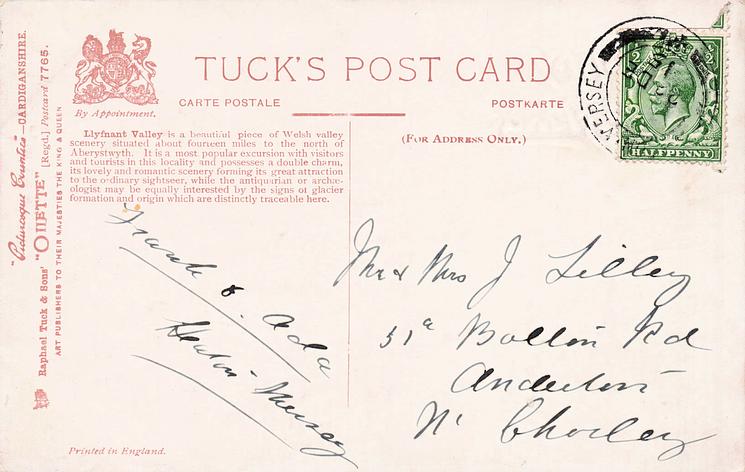 "Picturesque Counties"—CARDIGANSHIRE.
Raphael Tuck & Sons' "OILETTE" [Regd.] Postcard 7765.
ART PUBLISHERS TO THEIR MAJESTIES THE KING & QUEEN
By Appointment.
TUCK'S POST CARD
CARTE POSTALE
POSTKARTE
Llyfnant Valley is a beautiful piece of Welsh valley
scenery situated about fourteen miles to the north of
Aberystwyth. It is a most popular excursion with visitors
and tourists in this locality and possesses a double charm,
its lovely and romantic scenery forming its great attraction
to the ordinary sightseer, while the antiquarian or archæ-
ologist may be equally interested by the signs of glacier
formation and origin which are distinctly traceable here.
(FOR ADDRESS ONLY.)
MERSEY
HALFPENNY
Frank & Ada
Heaton Mersey
Mr & Mrs J Lilley
51a Bolton Rd
Anderton
Nr Chorley
Printed in England.